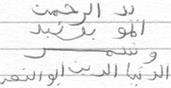 ند الرحمن
المو بد عبد
وشمس
الدنيا الدين ابو النصر